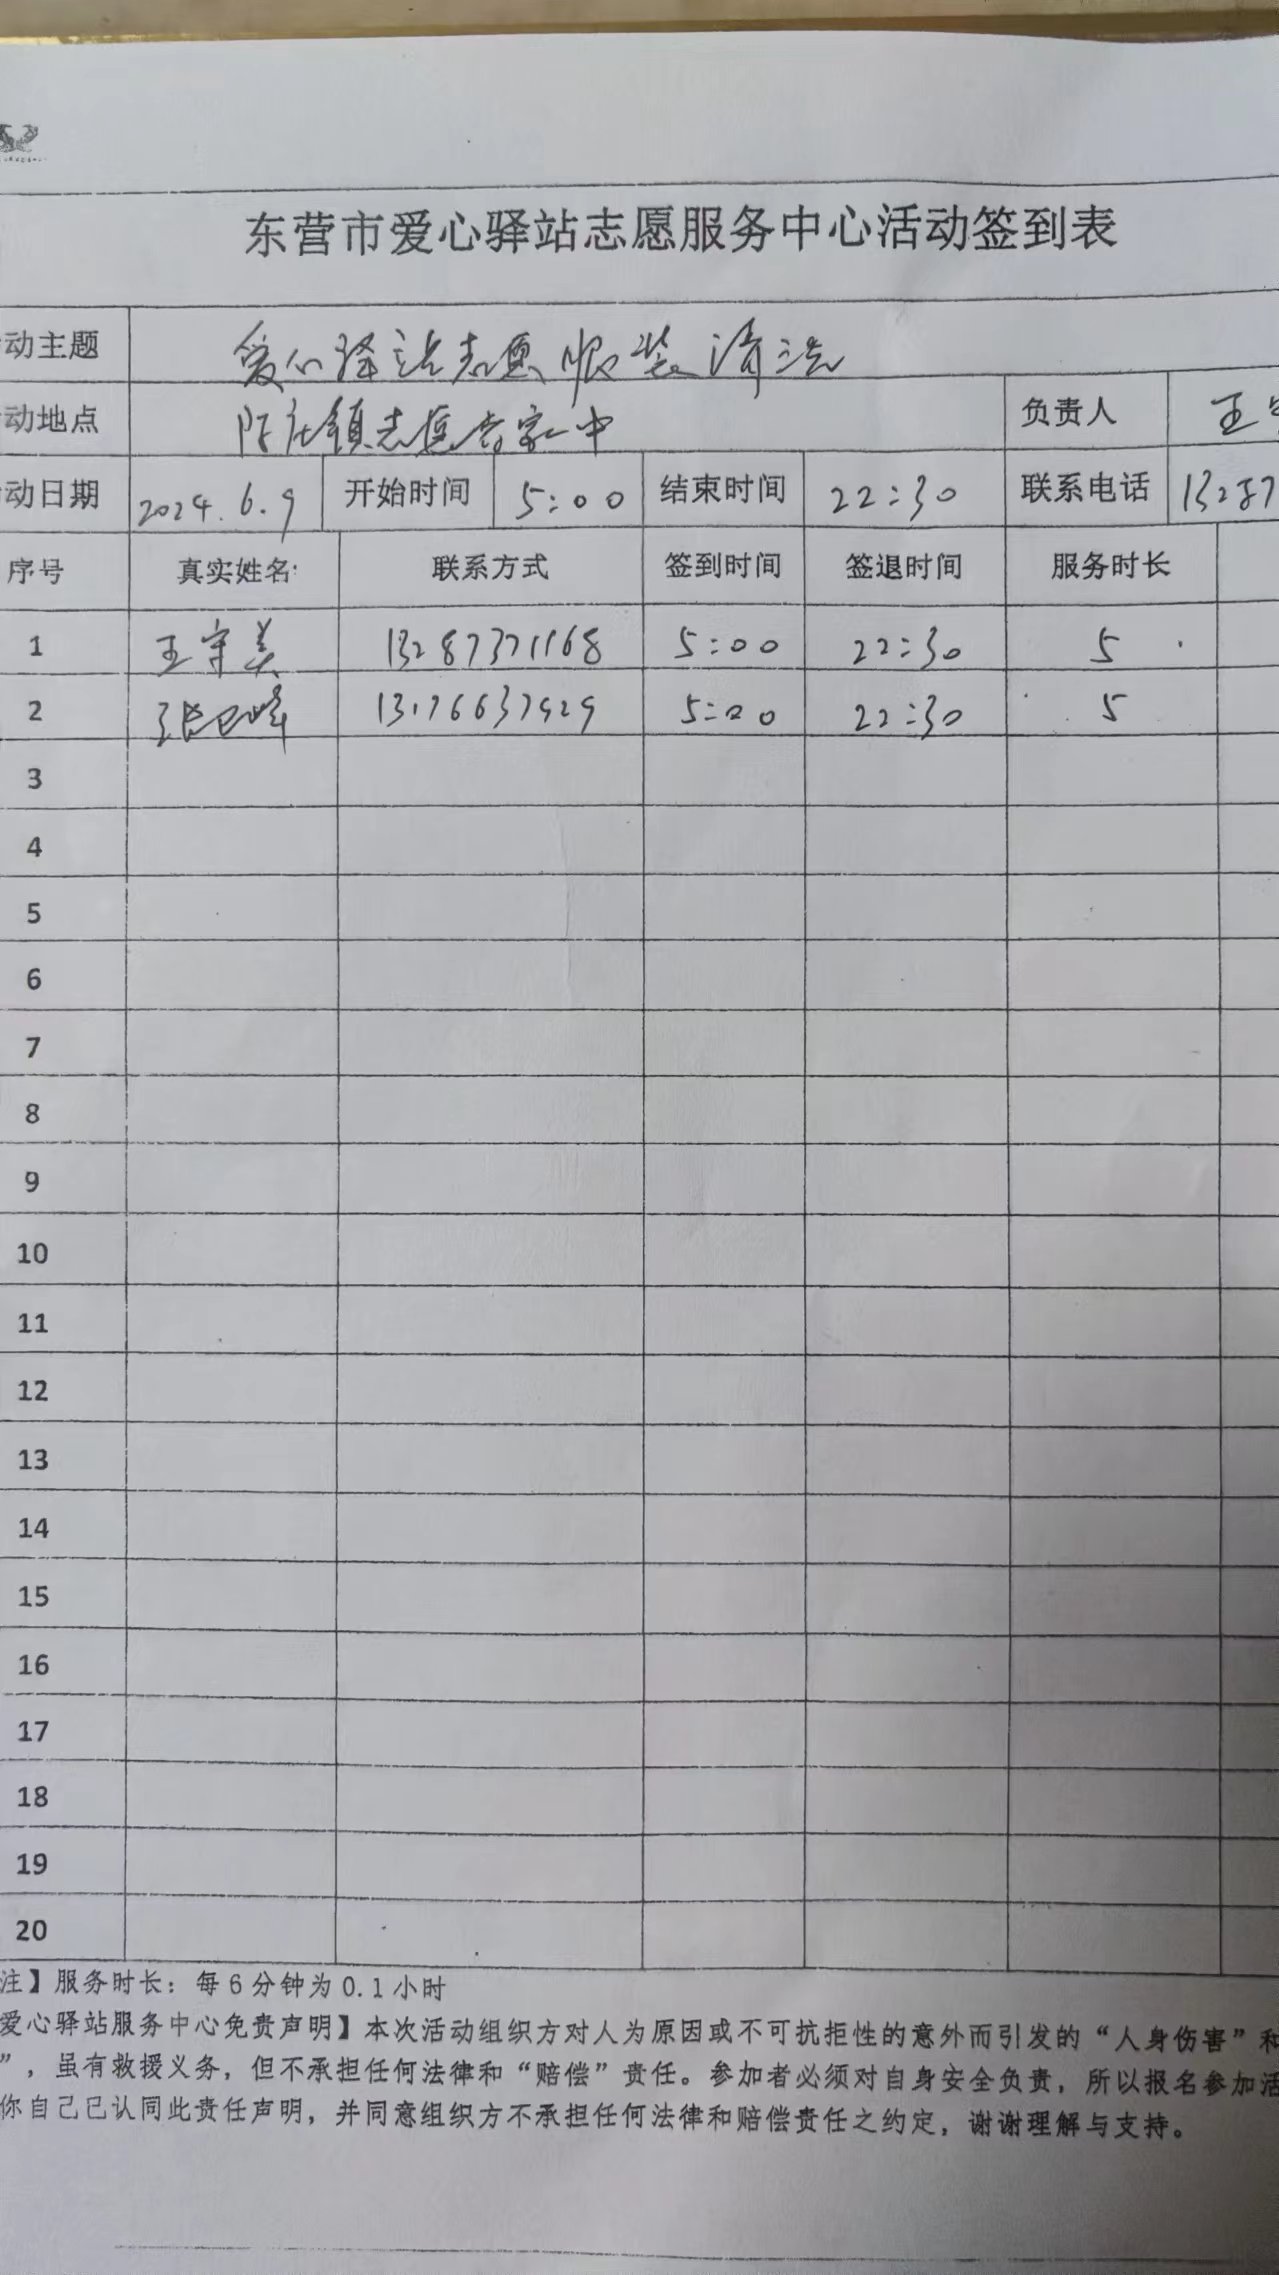 东营市爱心驿站志愿服务中心活动签到表
动主题 爱心驿站志愿服装清洗
动地点 陈庄镇志愿者家中 负责人 王
动日期 2024.6.9 开始时间 5:00 结束时间 22:30 联系电话 13287
序号 真实姓名 联系方式 签到时间 签退时间 服务时长
1 王守美 13287371168 5:00 22:30 5
2 张 峰 13176637929 5:00 22:30 5
3
4
5
6
7
8
9
10
11
12
13
14
15
16
17
18
19
20
注】服务时长：每6分钟为0.1小时
爱心驿站服务中心免责声明】本次活动组织方对人为原因或不可抗拒性的意外而引发的“人身伤害”和
”，虽有救援义务，但不承担任何法律和“赔偿”责任。参加者必须对自身安全负责，所以报名参加活
你自己已认同此责任声明，并同意组织方不承担任何法律和赔偿责任之约定，谢谢理解与支持。